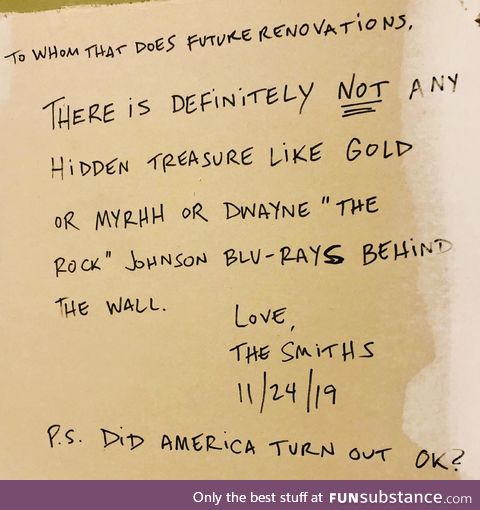 TO WHOM THAT DOES FUTURE RENOVATIONS,
THERE IS DEFINITELY NOT ANY
HIDDEN TREASURE LIKE GOLD
OR MYRHH OR DWAYNE "THE
ROCK" JOHNSON BLU-RAYS BEHIND
THE WALL.
LOVE,
THE SMITHS
11/24/19
P.S. DID AMERICA TURN OUT OK?
Only the best stuff at FUNsubstance.com